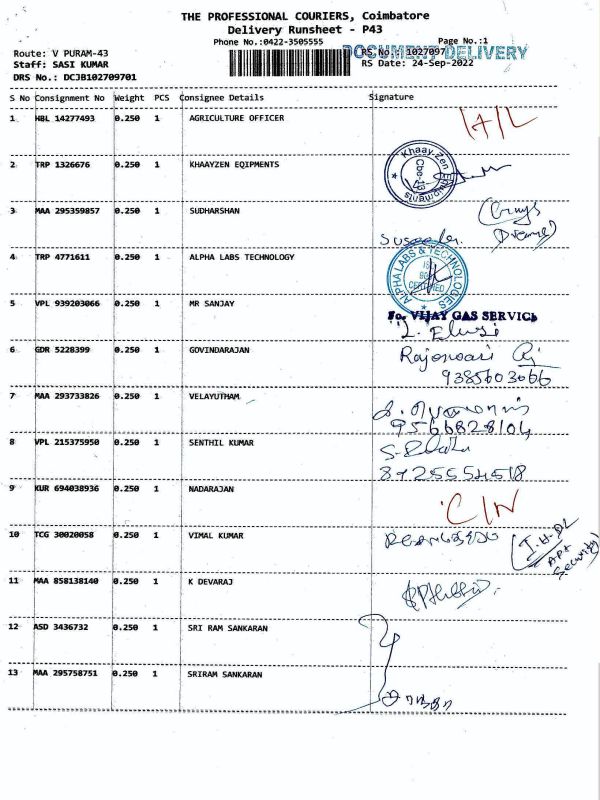 THE PROFESSIONAL COURIERS, Coimbatore
Delivery Runsheet - P43
Phone No.:0422-3505555
Page No.:1
DOCUMENT DELIVERY
Route: V PURAM-43
RS.No.: 1027097
Staff: SASI KUMAR
RS Date: 24-Sep-2022
DRS No.: DCJB102709701
S No Consignment No Weight PCS Consignee Details Signature
1 HBL 14277493 0.250 1 AGRICULTURE OFFICER
2 TRP 1326676 0.250 1 KHAAYZEN EQIPMENTS
Khaay Zen Equipments
Cbe-13
3 MAA 295359857 0.250 1 SUDHARSHAN
4 TRP 4771611 0.250 1 ALPHA LABS TECHNOLOGY
ALPHA LABS & TECHNOLOGIES
CERTIFIED
5 VPL 939203066 0.250 1 MR SANJAY
For VIJAY GAS SERVICE
6 GDR 5228399 0.250 1 GOVINDARAJAN
9385603066
7 MAA 293733826 0.250 1 VELAYUTHAM
9566828104
8 VPL 215375950 0.250 1 SENTHIL KUMAR
9 KUR 694038936 0.250 1 NADARAJAN
C/N
10 TCG 30020058 0.250 1 VIMAL KUMAR
Security
11 MAA 858138140 0.250 1 K DEVARAJ
12 ASD 3436732 0.250 1 SRI RAM SANKARAN
13 MAA 295758751 0.250 1 SRIRAM SANKARAN